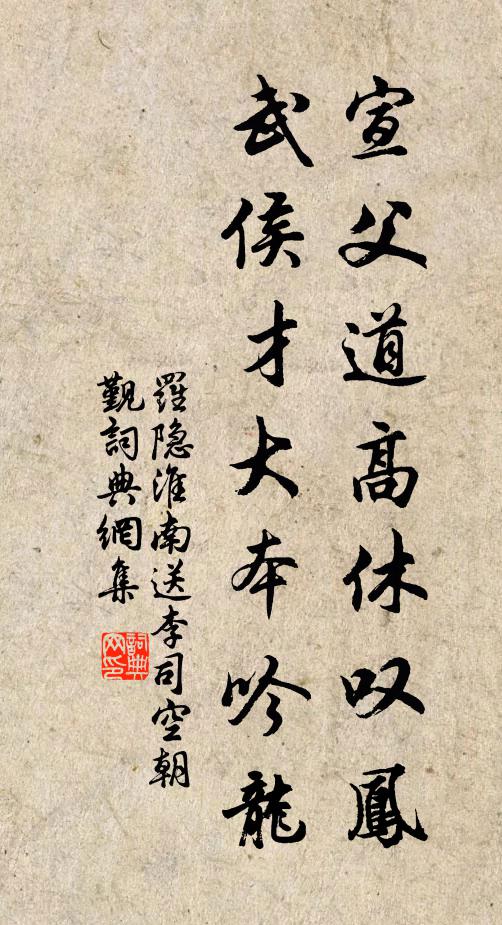 宣父道高休叹鳳
武侯才大本吟龍
羅隐淮南送李司空朝
觐詞典網集
詞典网印